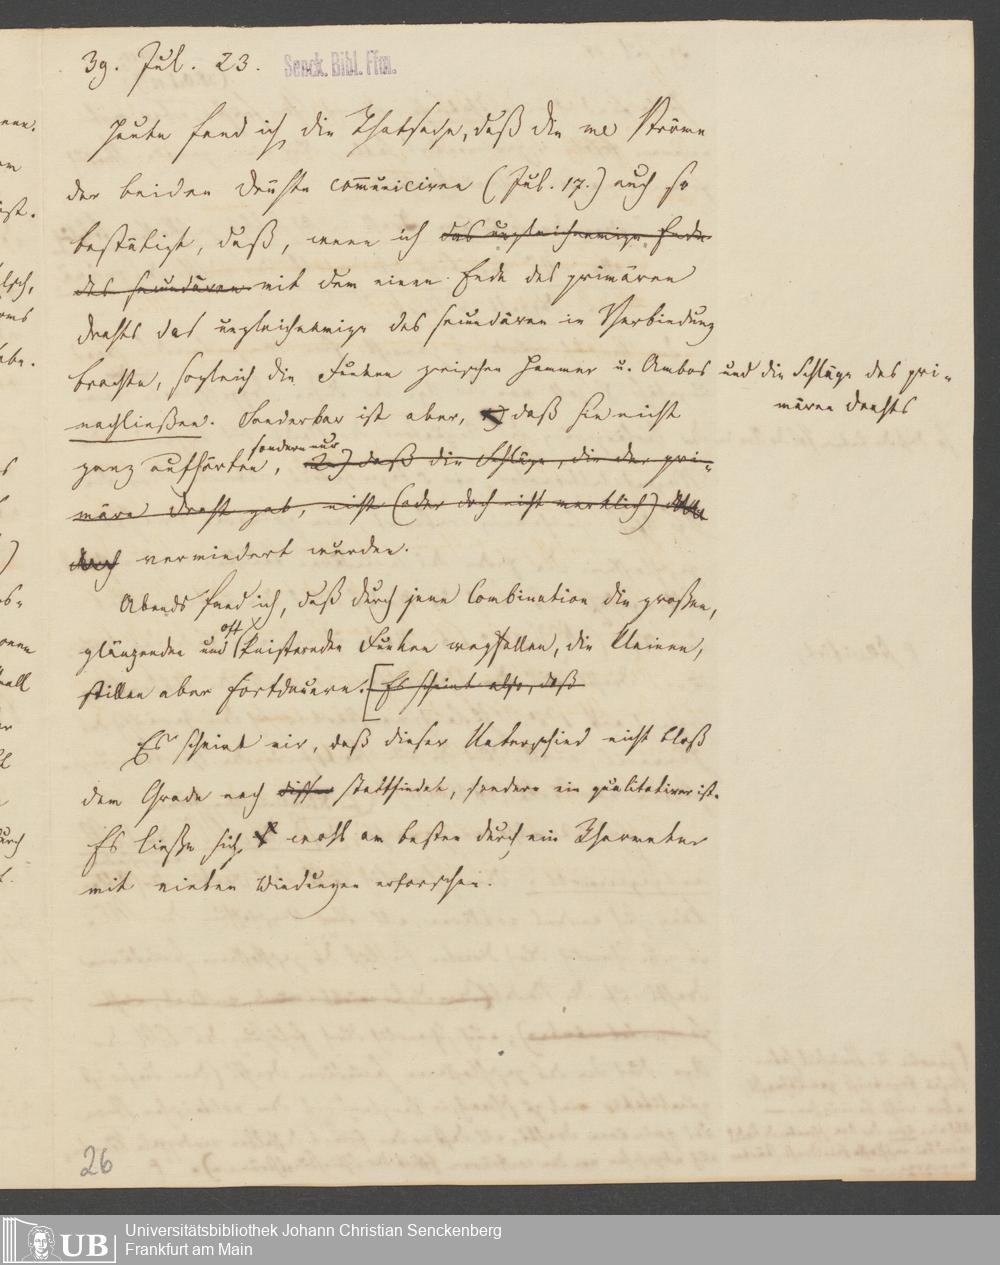 39. Jul. 23.
Senck. Bibl. Ffm.
Heute fand ich die Thatsache, daß die me Ströme
der beiden Drähte communiciren (Jul. 17.) auch so
bestätigt, daß, wenn ich das ungleichnamige Ende
des secundären mit dem einen Ende des primären
Drahts das ungleichnamige des secundären in Verbindung
brachte, sogleich die Funken zwischen Hammer u. Ambos und die Schläge des pri-
mären Drahts
nachließen. Sonderbar ist aber, daß sie nicht
ganz aufhörten, sondern nur 2.) daß die Schläge, die der pri-
märe Draht gab, nicht (oder doch nicht merklich)
vermindert wurden.
Abends fand ich, daß durch jene Combination die großen,
glänzenden und oft knisternden Funken wegfallen, die kleinen,
stillen aber fortdauern. [Es scheint also, daß
Es scheint mir, daß dieser Unterschied nicht bloß
dem Grade nach stattfindet, sondern ein qualitativer ist.
Es ließe sich wohl am besten durch ein
mit vielen Windungen erforschen.
26
UB
Universitätsbibliothek Johann Christian Senckenberg
Frankfurt am Main